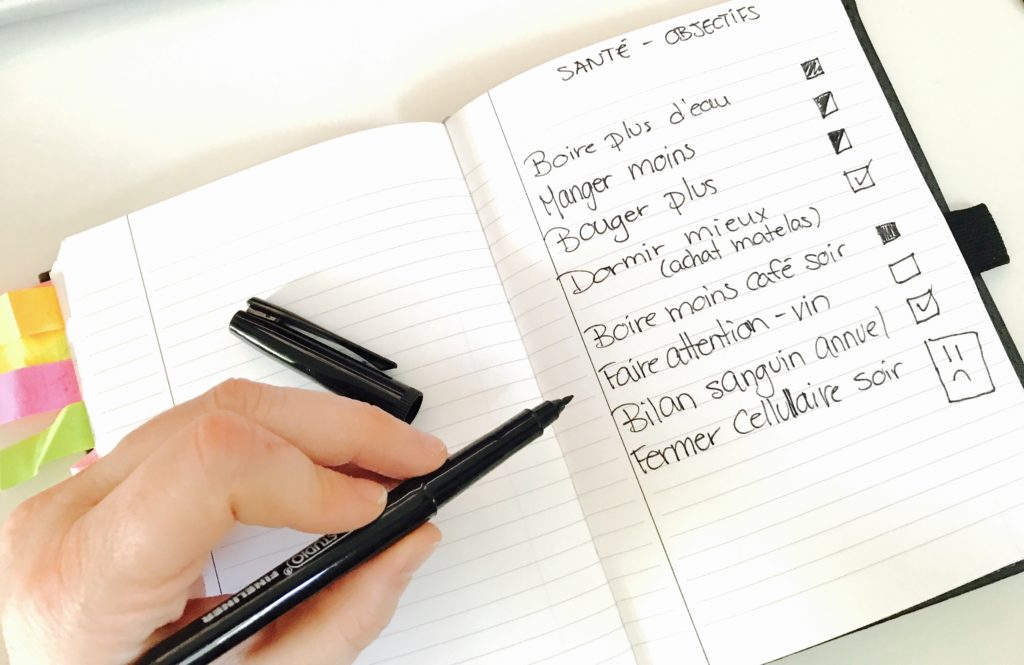 SANTÉ - OBJECTIFS
Boire plus d'eau
Manger moins
Bouger plus
Dormir mieux
(achat matelas)
Boire moins café soir
Faire attention - vin
Bilan sanguin annuel
Fermer cellulaire soir
STUDIO)® FINELINER